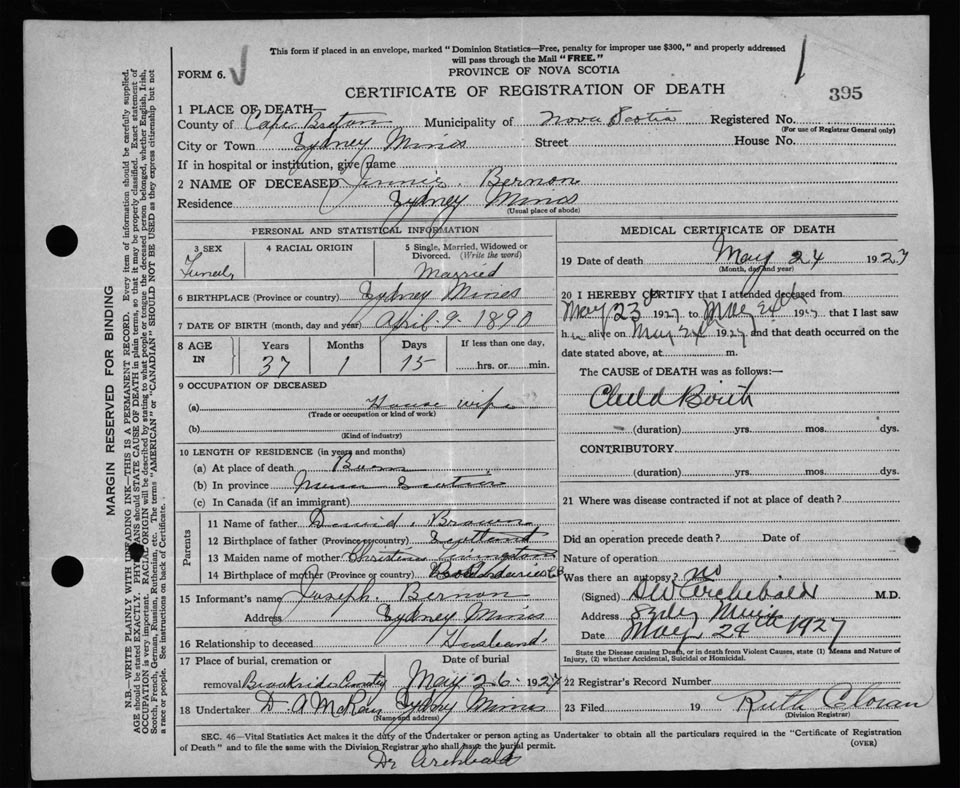 This form if placed in an envelope, marked "Dominion Statistics—Free, penalty for improper use $300," and properly addressed
will pass through the Mail "FREE."
PROVINCE OF NOVA SCOTIA
FORM 6.
CERTIFICATE OF REGISTRATION OF DEATH
395
1 PLACE OF DEATH—
County of Cape Breton Municipality of Nova Scotia Registered No.
(For use of Registrar General only)
City or Town Sydney Mines Street House No.
If in hospital or institution, give name
2 NAME OF DECEASED Jennie Bernon
Residence Sydney Mines
(Usual place of abode)
PERSONAL AND STATISTICAL INFORMATION
3 SEX
4 RACIAL ORIGIN
5 Single, Married, Widowed or Divorced. (Write the word)
Married
6 BIRTHPLACE (Province or country) Sydney Mines
7 DATE OF BIRTH (month, day and year) April 9 1890
8 AGE IN
Years Months Days If less than one day,
37 1 15 hrs. or min.
9 OCCUPATION OF DECEASED
(a) House wife
(Trade or occupation or kind of work)
(b)
(Kind of industry)
10 LENGTH OF RESIDENCE (in years and months)
(a) At place of death
(b) In province
(c) In Canada (if an immigrant)
Parents
11 Name of father David Brown
12 Birthplace of father (Province or country) Scotland
13 Maiden name of mother Christina Livingston
14 Birthplace of mother (Province or country)
15 Informant's name Joseph Bernon
Address Sydney Mines
16 Relationship to deceased Husband
17 Place of burial, cremation or removal Date of burial
May 26 1927
18 Undertaker D A McRae Sydney Mines
(Name and address)
MEDICAL CERTIFICATE OF DEATH
19 Date of death May 24 1927
(Month, day and year)
20 I HEREBY CERTIFY that I attended deceased from
May 23 1927 to May 24 1927 that I last saw
h alive on May 24 1927 and that death occurred on
date stated above, at m.
The CAUSE of DEATH was as follows:—
Child Birth
(duration) yrs. mos. dys.
CONTRIBUTORY
(duration) yrs. mos. dys.
21 Where was disease contracted if not at place of death?
Did an operation precede death? Date of
Nature of operation
Was there an autopsy? no
(Signed) DW Archibald M.D.
Address Sydney Mines
Date May 24th 1927
State the Disease causing Death, or in death from Violent Causes, state (1) Means and Nature of
Injury, (2) whether Accidental, Suicidal or Homicidal.
22 Registrar's Record Number
23 Filed 19 Ruth
(Division Registrar)
SEC. 46—Vital Statistics Act makes it the duty of the Undertaker or person acting as Undertaker to obtain all the particulars required in the "Certificate of Registration
of Death" and to file the same with the Division Registrar who shall issue the burial permit.
(OVER)
Dr Archibald
MARGIN RESERVED FOR BINDING
N.B.—WRITE PLAINLY WITH UNFADING INK—THIS IS A PERMANENT RECORD. Every item of information should be carefully supplied.
AGE should be stated EXACTLY. PHYSICIANS should STATE CAUSE OF DEATH in plain terms, so that it may be properly classified. Exact statement of
OCCUPATION is very important. RACIAL ORIGIN will be described by stating to what people or tongue the deceased person belonged, whether English, Irish,
Scotch, French, German, Russian, Ruthenian, etc. The terms "AMERICAN" or "CANADIAN" SHOULD NOT BE USED as they express citizenship but not
a race or people. See instructions on back of Certificate.